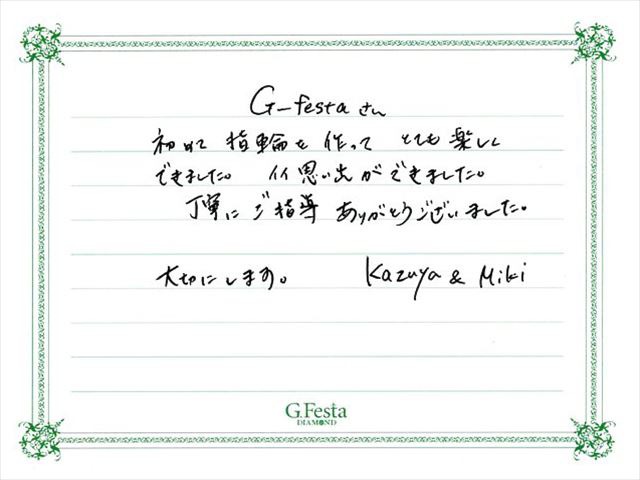 G-festa さん
初めて 指輪を 作って とても 楽しく
できました。 イイ思い出が できました。
丁寧に ご指導 ありがとうございました。
大切にします。 Kazuya & Miki
G.Festa
DIAMOND